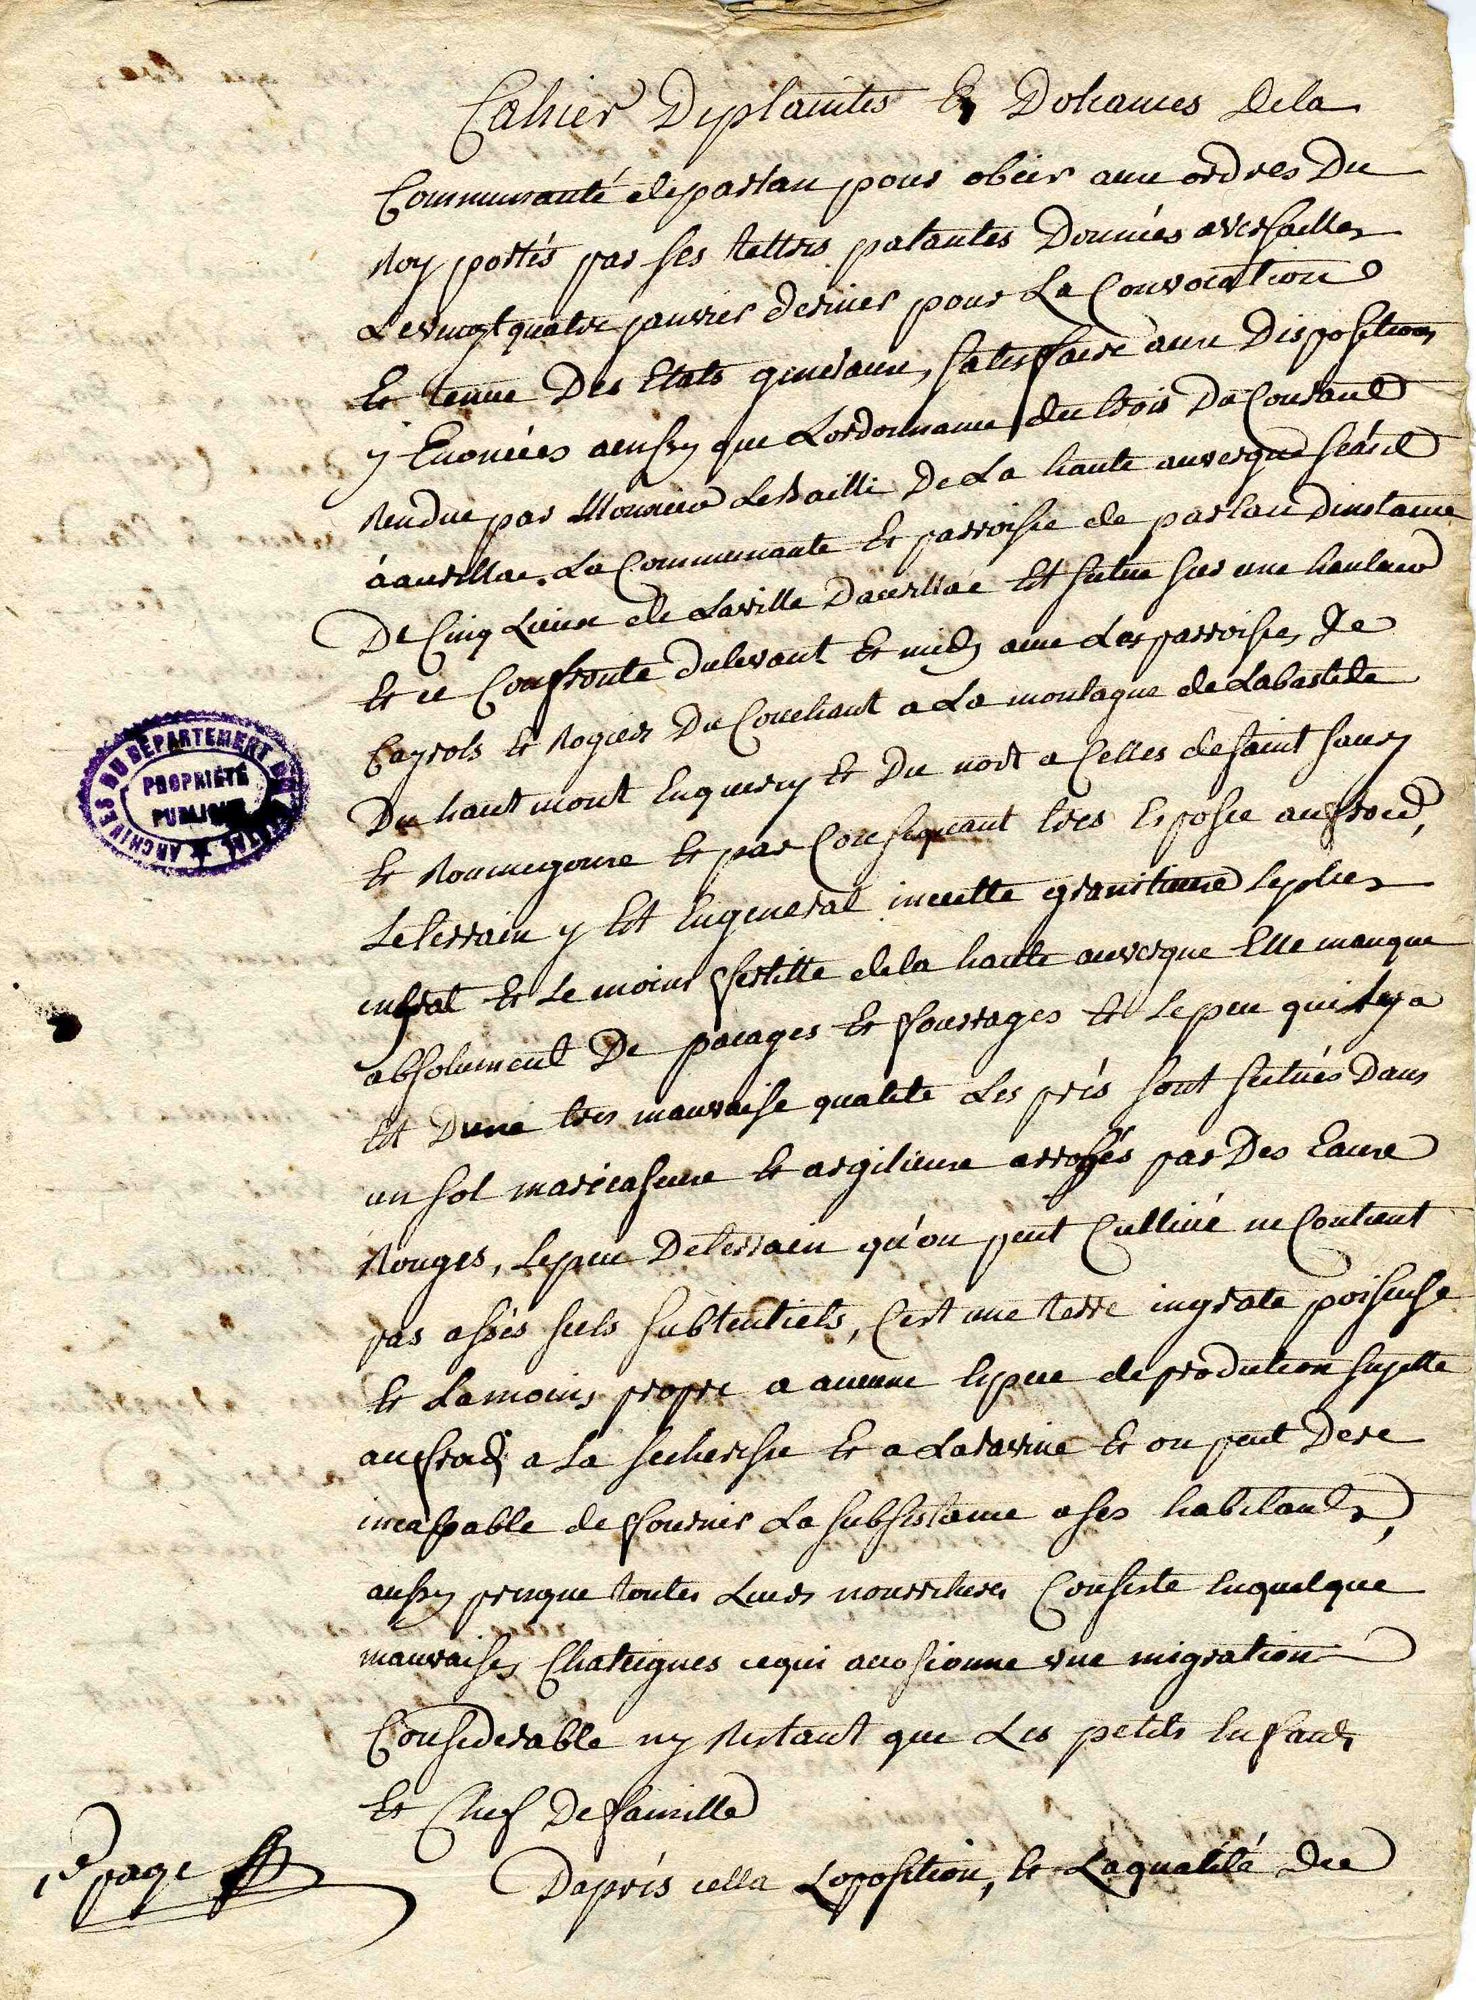 Cahier De plaintes Et Doleances de la
Communauté de parlan pour obeir aux ordres Du
Roy portés par ses lettres patantes Données a versailles
Le vingt quatre janvier dernier pour La Convocation
Et tenue Des Etats generaux, satisfaire aux Dispositions
y Enoncées ainsy que L'ordonnance du trois Du Courant
Rendue par Monsieur Le Bailli De La haute auvergne séant
à aurillac. La Communauté Et parroisse de parlan Distante
De Cinq Lieux de La ville Daurillac Est située sur une hauteur
Et ce Confronte du levant Et midy aux Les parroisses de
Cayrols Et Rogiers Du Couchant a La montagne de Labastide
Du haut mont En quercy Et Du nort a Celles de saint saury
Et Roumegoux Et par Consequant tres Exposée au froid,
Le terrain y Est En general inculte graniteux Le plus
ingrat Et Le moins fertille de la haute auvergne Elle manque
absolument De pacages Et fourrages Et Le peu qu'il y a
Est D'une tres mauvaise qualité Les prés sont situés Dans
un sol marécageux Et argilieux arrosés par Des Eaux
Rouges, Le peu De terrain qu'on peut Cultivé ne Contient
pas assés sels substentiels, C'est une terre ingrate
Et La moins propre a aucune Espece de production sujette
au froid a La secheresse Et a La ravine Et on peut Dire
incapable de fournir La subsistance a ses habitants,
aussy presque toutes Leurs nourritures Consiste En quelque
mauvaises Chateignes ce qui accosionne une migration
Considerable ny Restant que Les petits Enfants
Et Chef De famille
D'aprés cella L'oposition, Et La qualité du
1re page
ARCHIVES DU DEPARTEMENT DU CANTAL
PROPRIÉTÉ
PUBLIQUE